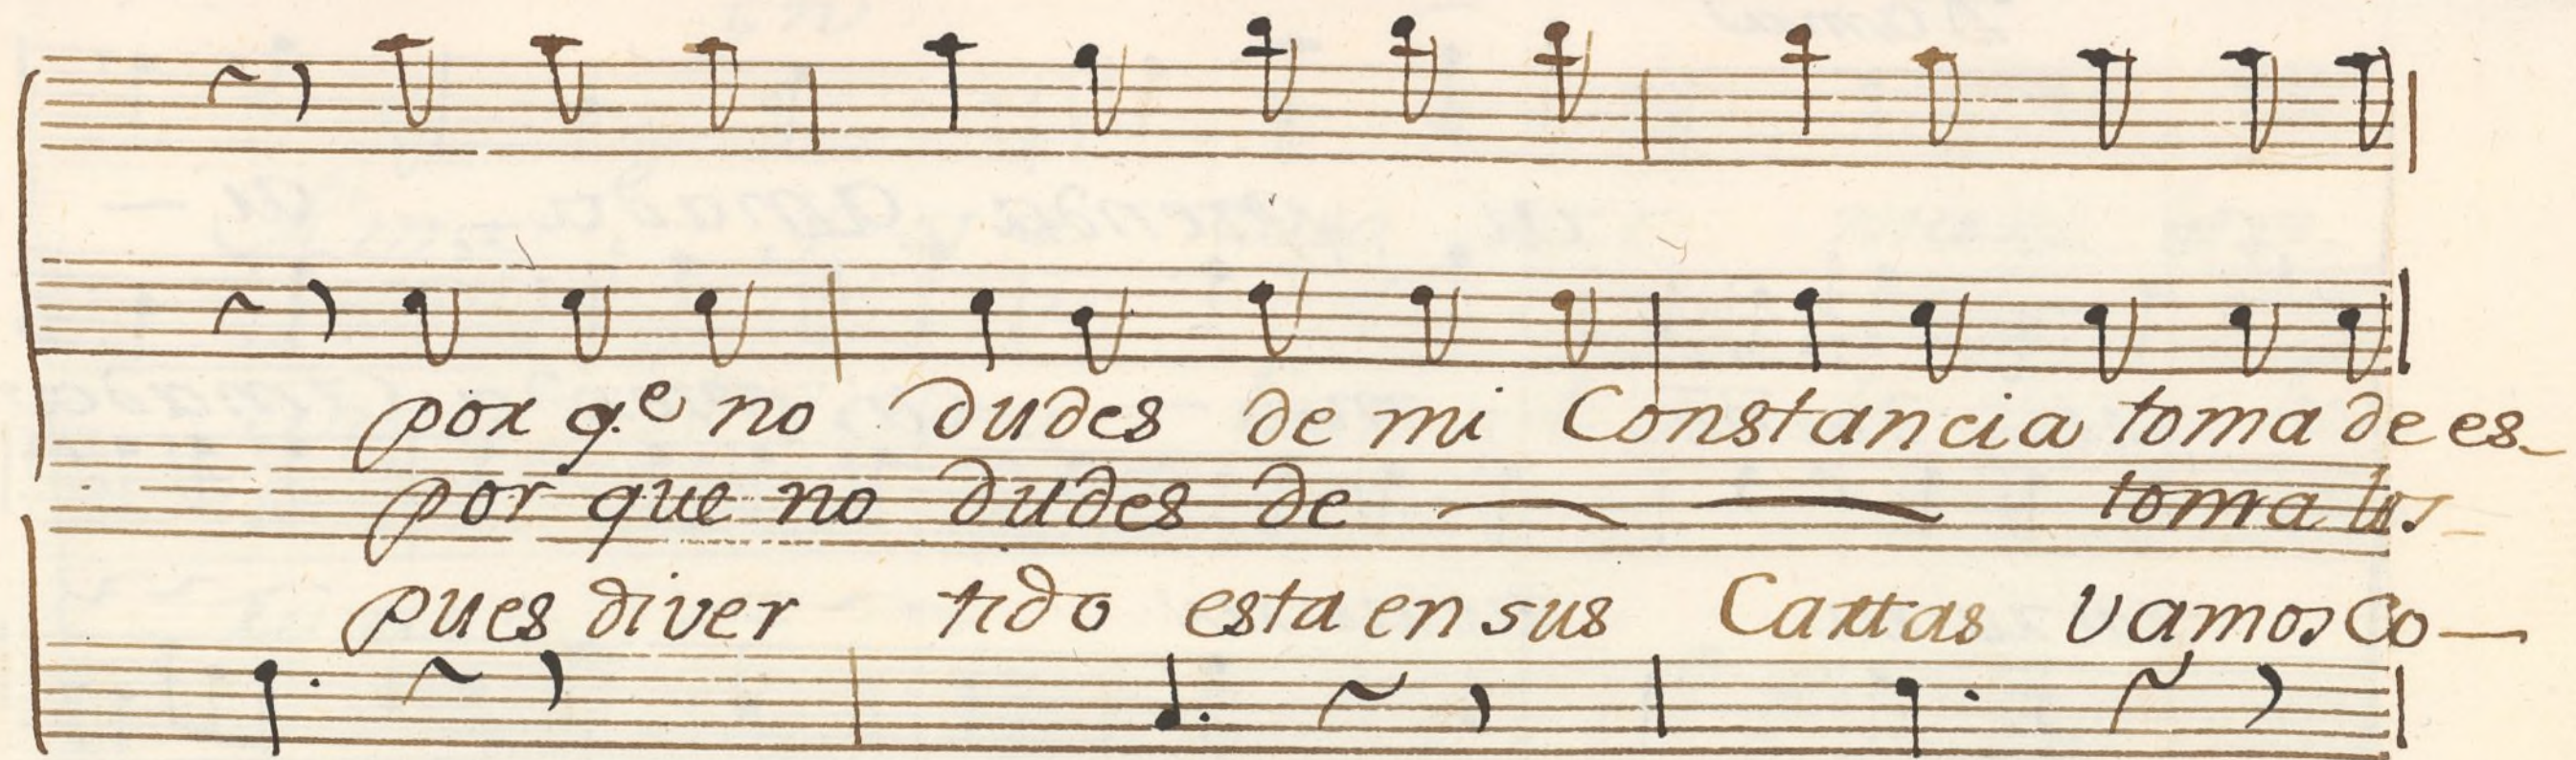 por q.e no dudes de mi Constancia toma de es-
por que no dudes de toma los
pues diver tido esta en sus Cartas Vamos Co-